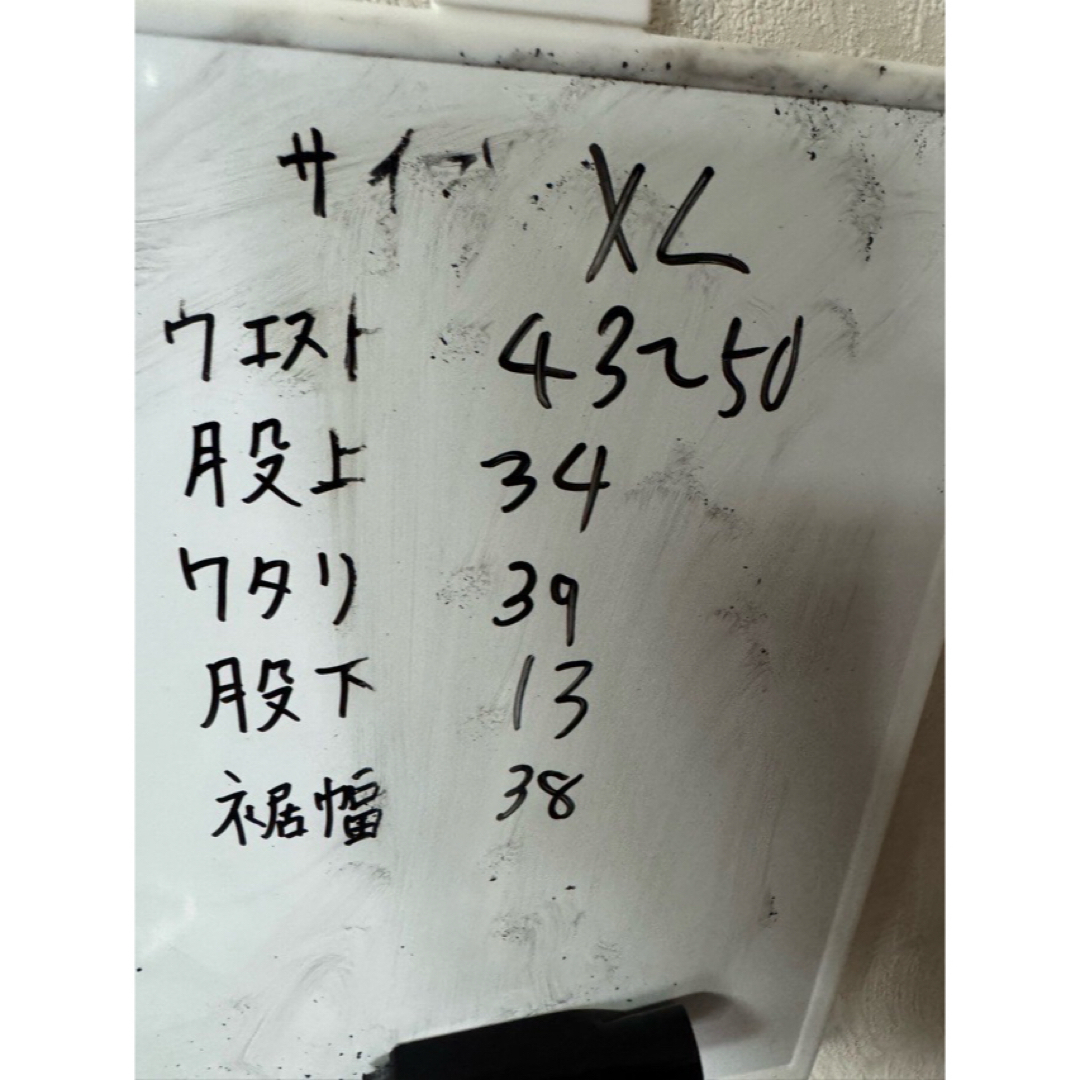 サイズ XL
ウエスト 43~50
股上 34
ワタリ 39
股下 13
裾幅 38